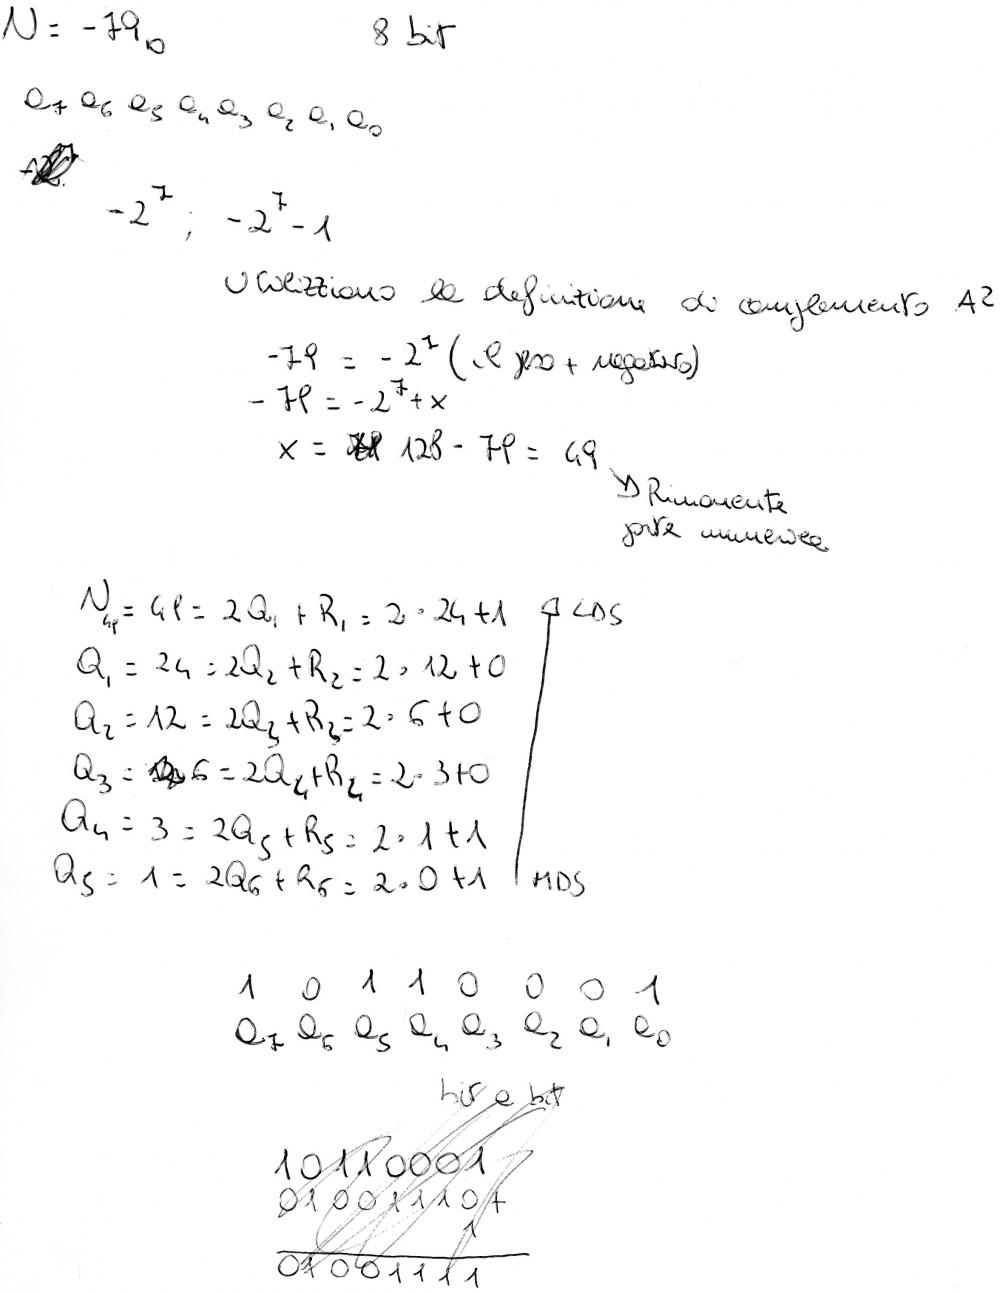 N = -79₁₀ 8 bit
a₇ a₆ a₅ a₄ a₃ a₂ a₁ a₀
-2⁷ ; -2⁷ - 1
Utilizziamo la definizione di complemento A2
-79 = -2⁷ (il peso + negativo)
-79 = -2⁷ + x
x = 128 - 79 = 49
Rimanente
parte numerica
N₄₉ = 49 = 2Q₁ + R₁ = 2 · 24 + 1 LDS
Q₁ = 24 = 2Q₂ + R₂ = 2 · 12 + 0
Q₂ = 12 = 2Q₃ + R₃ = 2 · 6 + 0
Q₃ = 6 = 2Q₄ + R₄ = 2 · 3 + 0
Q₄ = 3 = 2Q₅ + R₅ = 2 · 1 + 1
Q₅ = 1 = 2Q₆ + R₆ = 2 · 0 + 1 MDS
1 0 1 1 0 0 0 1
a₇ a₆ a₅ a₄ a₃ a₂ a₁ a₀
bit a bit
10110001
01001110 +
1
01001111